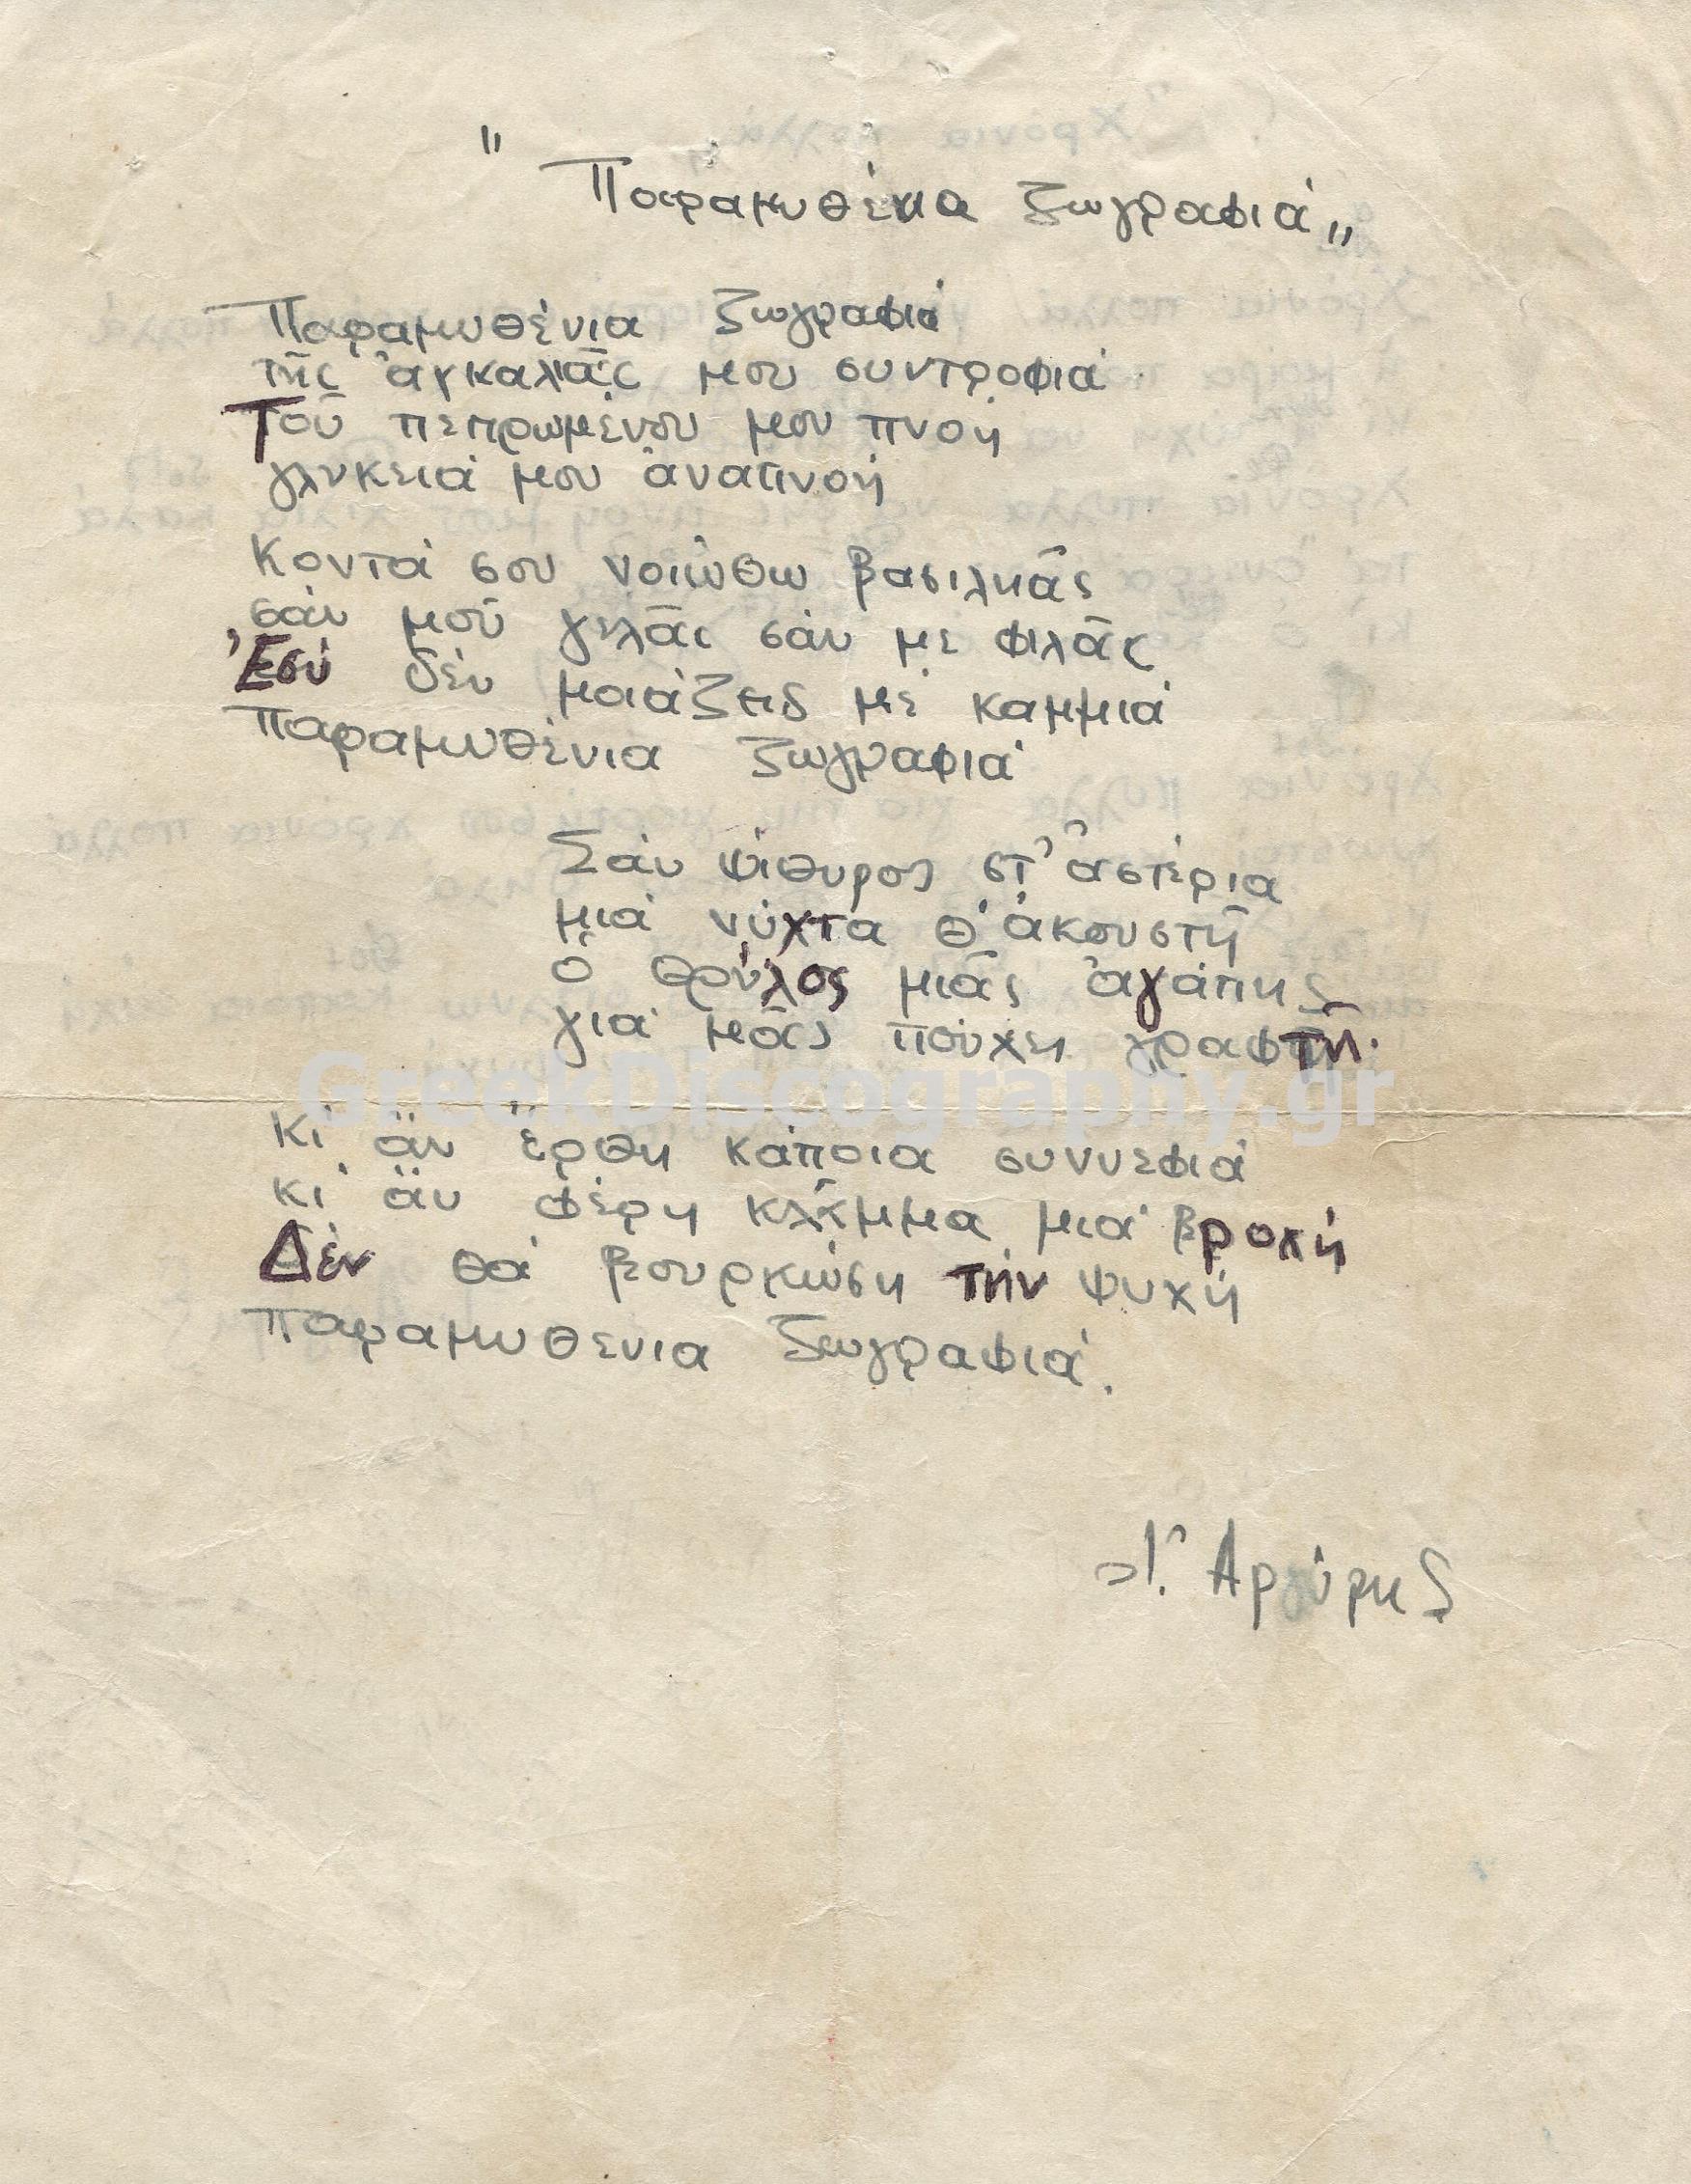 "Παραμυθένια ζωγραφιά„
Παραμυθένια ζωγραφιά
τῆς ἀγκαλιᾶς μου συντροφιά
Τοῦ πεπρωμένου μου πνοή
γλυκειά μου ἀναπνοή
Κοντά σου νοιώθω βασιληᾶς
σάν μοῦ γελᾶς σάν με φιλᾶς
Ἐσύ δέν μοιάζεις μέ καμμιά
παραμυθένια ζωγραφιά
Σάν ψίθυρος στ' ἀστέρια
μιά νύχτα θ' ἀκουστῆ
ὁ θρύλος μιᾶς ἀγάπης
γιά μᾶς πούχει γραφτῆ.
GreekDiscography.gr
Κι' ἄν ἔρθη κάποια συννεφιά
κι' ἄν φέρη κλᾶμμα μιά βροχή
Δέν θά βουρκώση τήν ψυχή
παραμυθενια ζωγραφιά.
Ἀργύρης